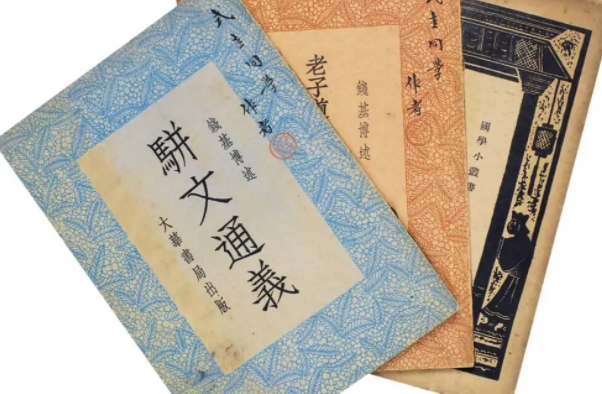 式圭同學
作者
錢基博述
駢文通義
大華書局出版
式圭同學
作者
錢基博述
老子道
國學小叢書